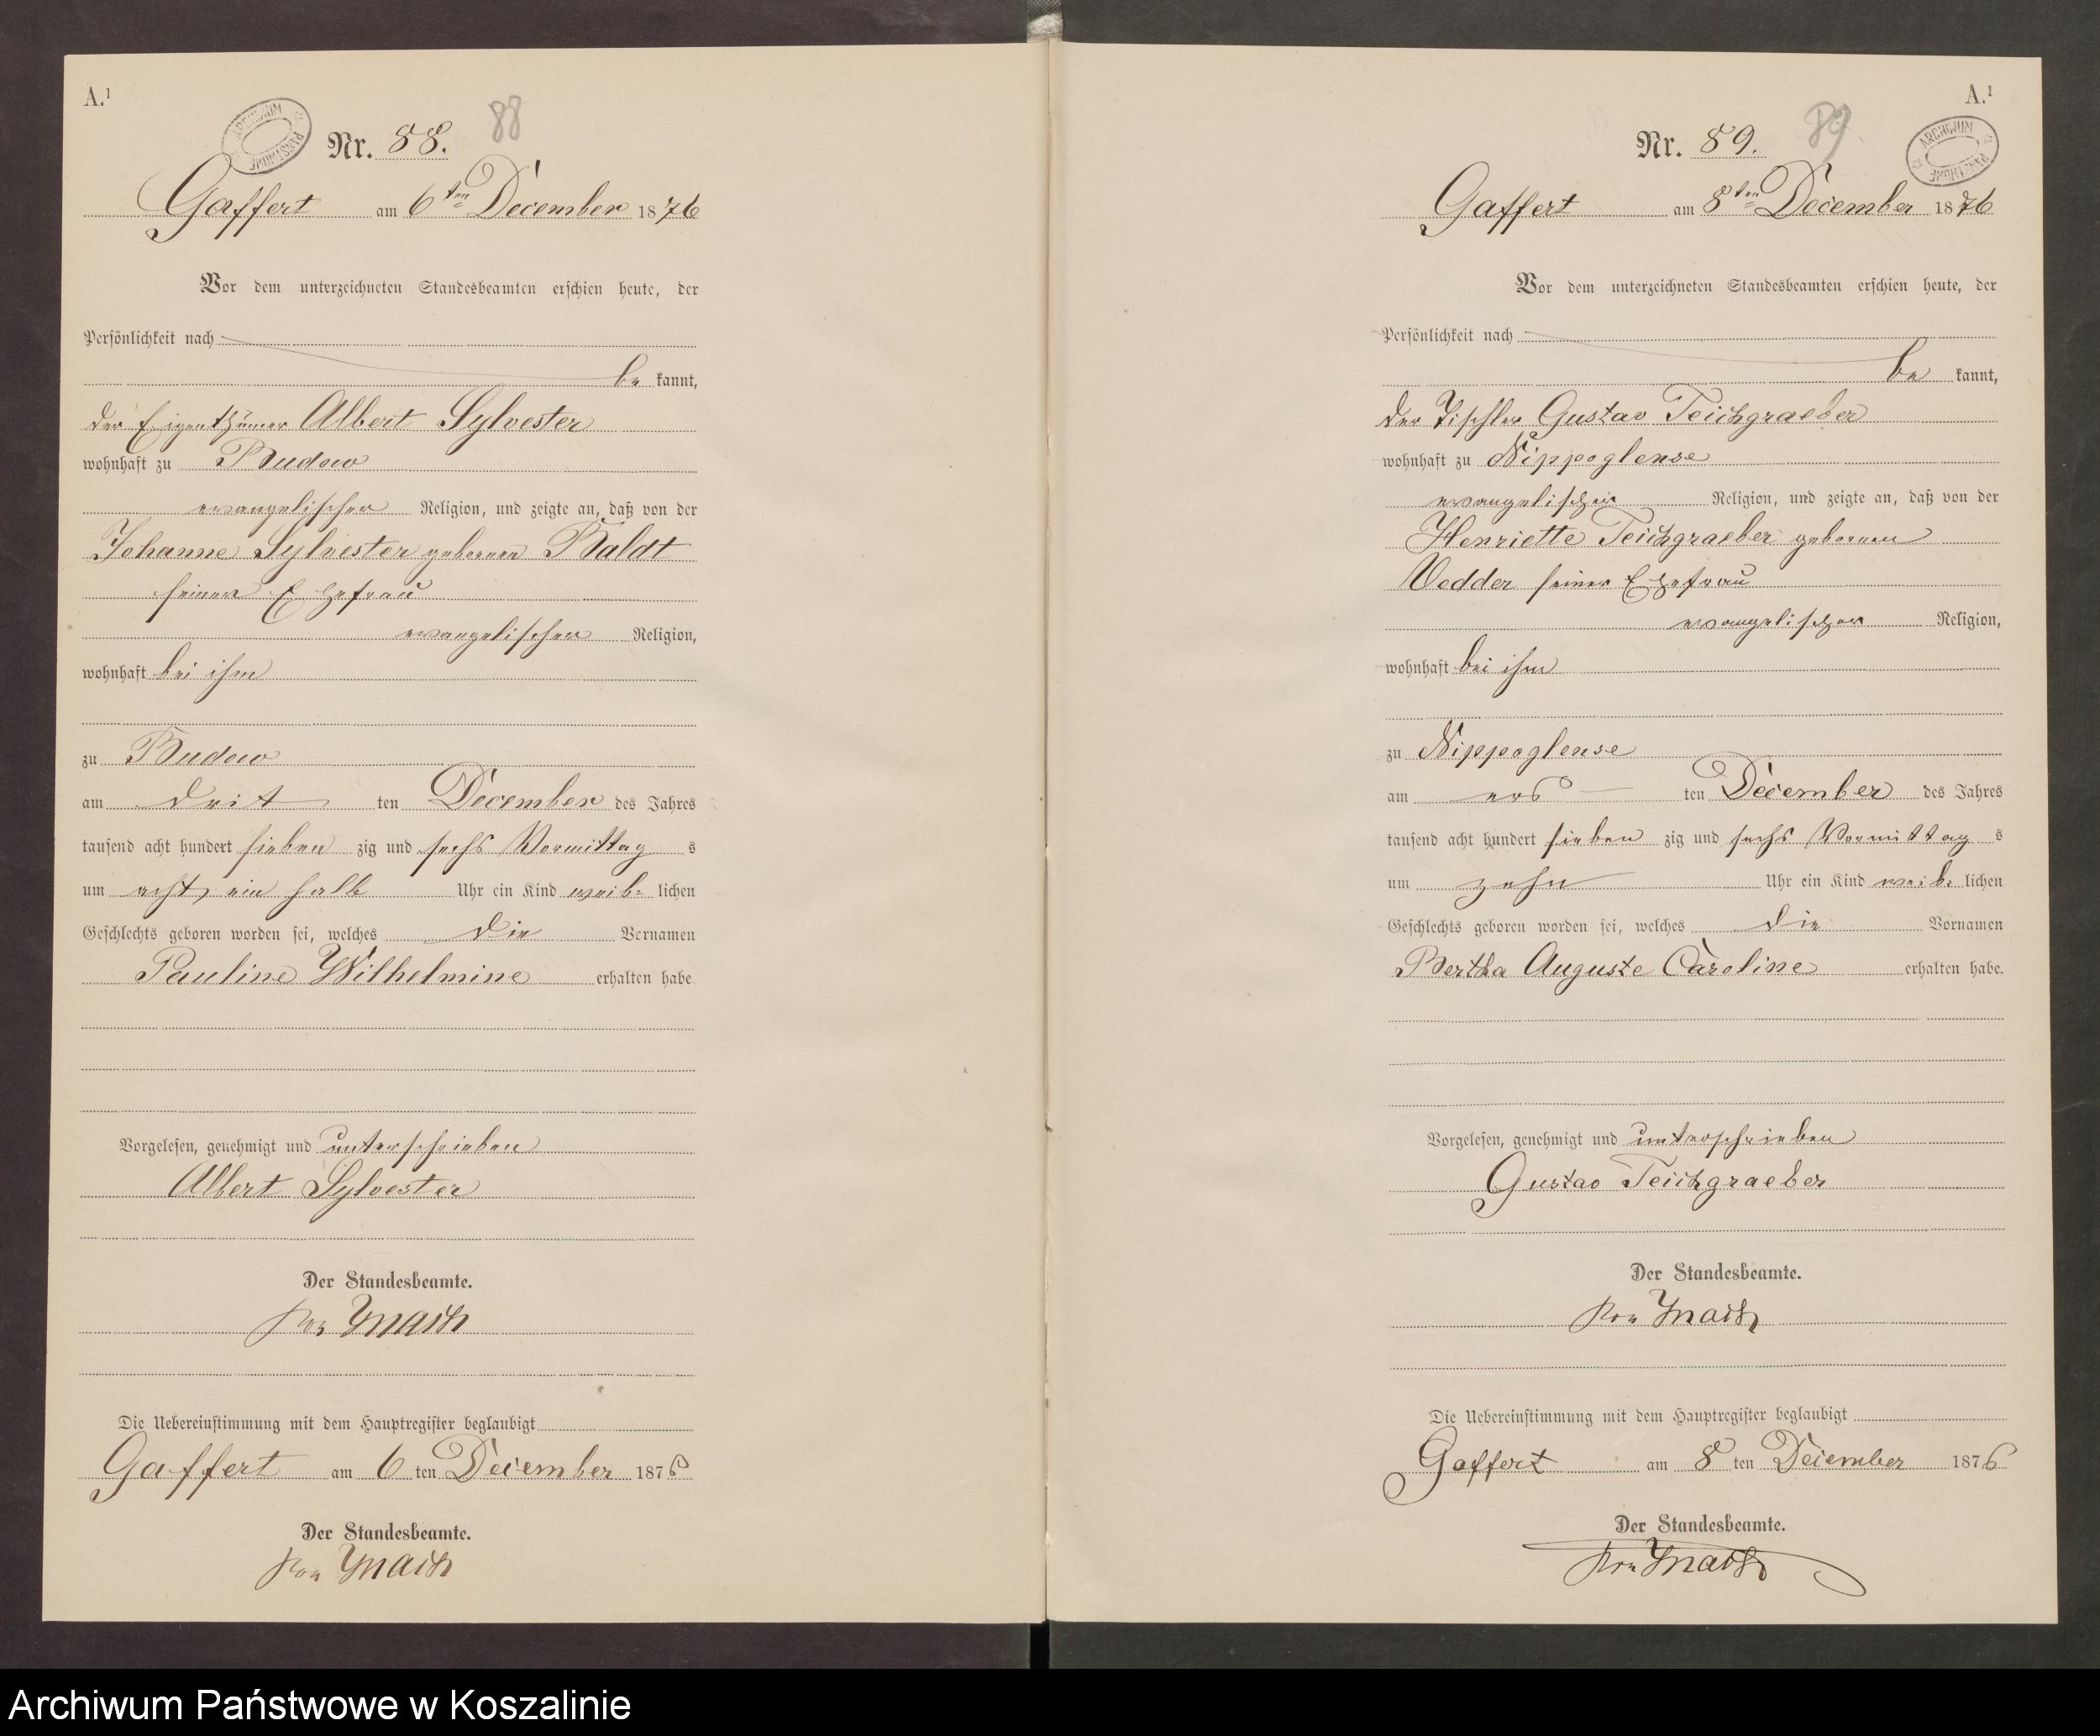 A.¹
ARCHIWUM PAŃSTWOWE
Nr. 88.
88
Gaffert am 6ten December 1876
Vor dem unterzeichneten Standesbeamten erschien heute, der
Persönlichkeit nach
be kannt,
der Eigenthümer Albert Sylvester
wohnhaft zu Budow
evangelischer Religion, und zeigte an, daß von der
Johanne Sylvester geborenen Baldt
seiner Ehefrau
evangelischer Religion,
wohnhaft bei ihm
zu Budow
am drit ten December des Jahres
tausend acht hundert sieben zig und sechs Vormittag s
um acht ein halb Uhr ein Kind weib- lichen
Geschlechts geboren worden sei, welches die Vornamen
Pauline Wilhelmine erhalten habe
Vorgelesen, genehmigt und unterschrieben
Albert Sylvester
Der Standesbeamte.
Die Uebereinstimmung mit dem Hauptregister beglaubigt
Gaffert am 6 ten December 1876
Der Standesbeamte.
A.¹
Nr. 89.
89
ARCHIWUM PAŃSTWOWE
Gaffert am 8ten December 1876
Vor dem unterzeichneten Standesbeamten erschien heute, der
Persönlichkeit nach
be kannt,
der Tischler Gustav Teichgraeber
wohnhaft zu Nippoglense
evangelischer Religion, und zeigte an, daß von der
Henriette Teichgraeber geborenen
Vedder seiner Ehefrau
evangelischer Religion,
wohnhaft bei ihm
zu Nippoglense
am ers ten December des Jahres
tausend acht hundert sieben zig und sechs Vormittag s
um zehn Uhr ein Kind weib- lichen
Geschlechts geboren worden sei, welches die Vornamen
Bertha Auguste Caroline erhalten habe.
Vorgelesen, genehmigt und unterschrieben
Gustav Teichgraeber
Der Standesbeamte.
Die Uebereinstimmung mit dem Hauptregister beglaubigt
Gaffert am 8 ten December 1876
Der Standesbeamte.
Archiwum Państwowe w Koszalinie